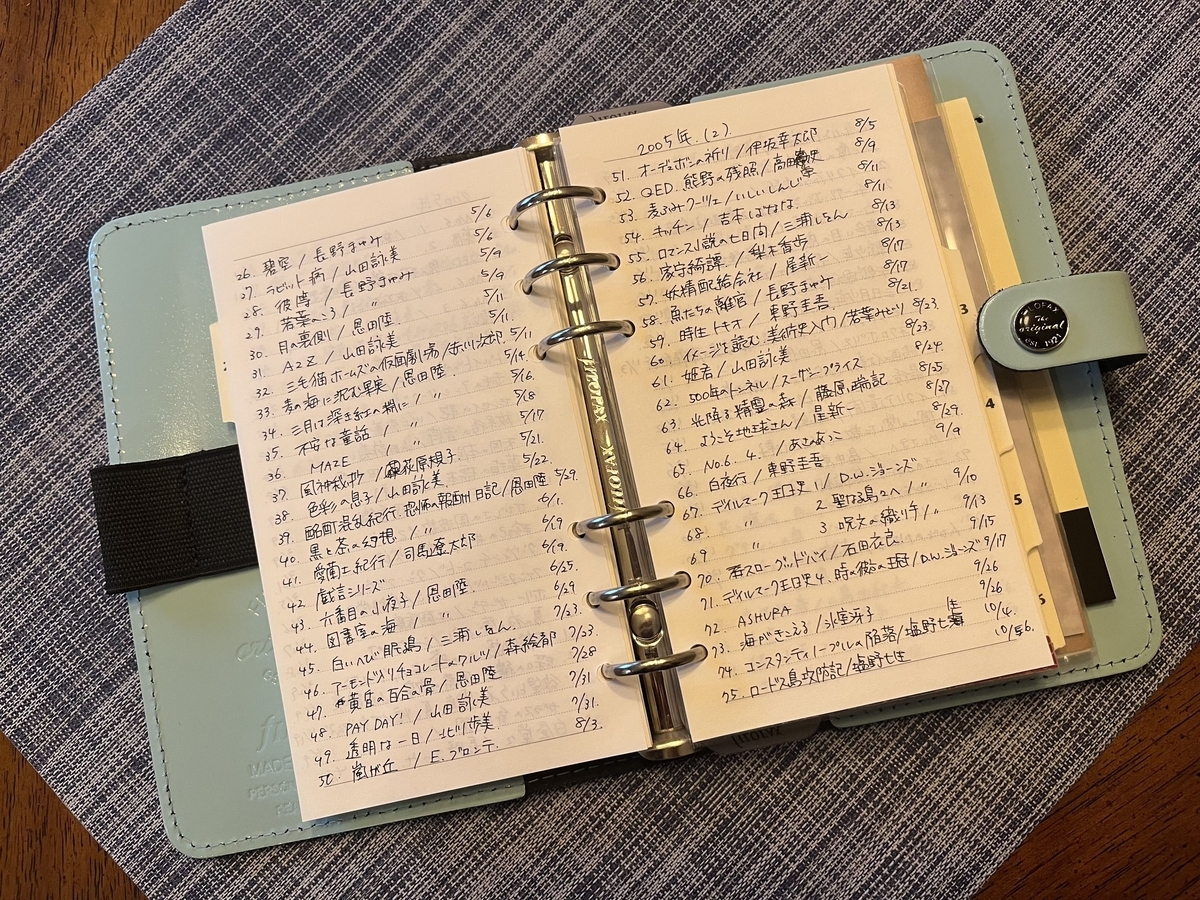 26. 碧空 / 長野まゆみ 5/6
27. ラビット病 / 山田詠美 5/6
28. 彼等 / 長野まゆみ 5/9
29. 若葉のころ / 〃 5/9
30. 月の裏側 / 恩田陸 5/11
31. A2Z / 山田詠美 5/11.
32. 三毛猫ホームズの仮面劇場 / 赤川次郎. 5/11
33. 麦の海に沈む果実 / 恩田陸 5/14.
34. 三月は深き紅の淵に / 〃 5/16.
35. 不安な童話 / 〃 5/18
36. MAZE / 〃 5/17
37. 風神秘抄 / 荻原規子 5/21.
38. 色彩の息子 / 山田詠美 5/22.
39. 酩酊混乱紀行.恐怖の報酬日記 / 恩田陸 5/29.
40. 黒と茶の幻想 / 〃 6/1.
41. 愛蘭土紀行 / 司馬遼太郎 6/19
42. 戯言シリーズ 6/19.
43. 六番目の小夜子 / 恩田陸 6/25.
44. 図書室の海 / 〃 6/29
45. 白いへび眠る島 / 三浦しをん. 7/23.
46. アーモンド入りチョコレートのワルツ / 森絵都 7/23.
47. 黄昏の百合の骨 / 恩田陸 7/28
48. PAY DAY! / 山田詠美 7/31
49. 透明な一日 / 北川歩実 7/31.
50. 嵐が丘 / E.ブロンテ. 8/3.
2005年.(2).
51. オーデュボンの祈り / 伊坂幸太郎 8/5
52. QED.熊野の残照 / 高田崇史 8/9
53. 麦ふみクーツェ / いしいしんじ 8/11
54. キッチン / 吉本ばなな. 8/11
55. ロマンス小説の七日間 / 三浦しをん 8/13
56. 家守綺譚 / 梨木香歩 8/13
57. 妖精配給会社 / 星新一 8/17
58. 魚たちの離宮 / 長野まゆみ 8/17
59. 時生 トキオ / 東野圭吾 8/21.
60. イメージを読む.美術史入門 / 若桑みどり 8/23.
61. 姫君 / 山田詠美 8/23.
62. 500年のトンネル / スーザン・プライス 8/24
63. 光降る精霊の森 / 藤原瑞記 8/25
64. ようこそ地球さん / 星新一 8/27
65. No.6 4. / あさのあつこ 8/29.
66. 白夜行 / 東野圭吾 9/9
67. デイルマーク王国史 1 / D.W.ジョーンズ
68. 〃 2 聖なる島々へ / 〃 9/10
69. 〃 3 呪文の織り手 / 〃 9/13
70. スローグッドバイ / 石田衣良 9/15
71. デイルマーク王国史 4. 時の彼方の王冠 / D.W.ジョーンズ 9/17
72. ASHURA 9/26
73. 海がきこえる / 氷室冴子 9/26
74. コンスタンティノープルの陥落 / 塩野七生 10/4.
75. ロードス島攻防記 / 塩野七生 10/6.
FILOFAX
The
original
EST. 1921
3
4
5